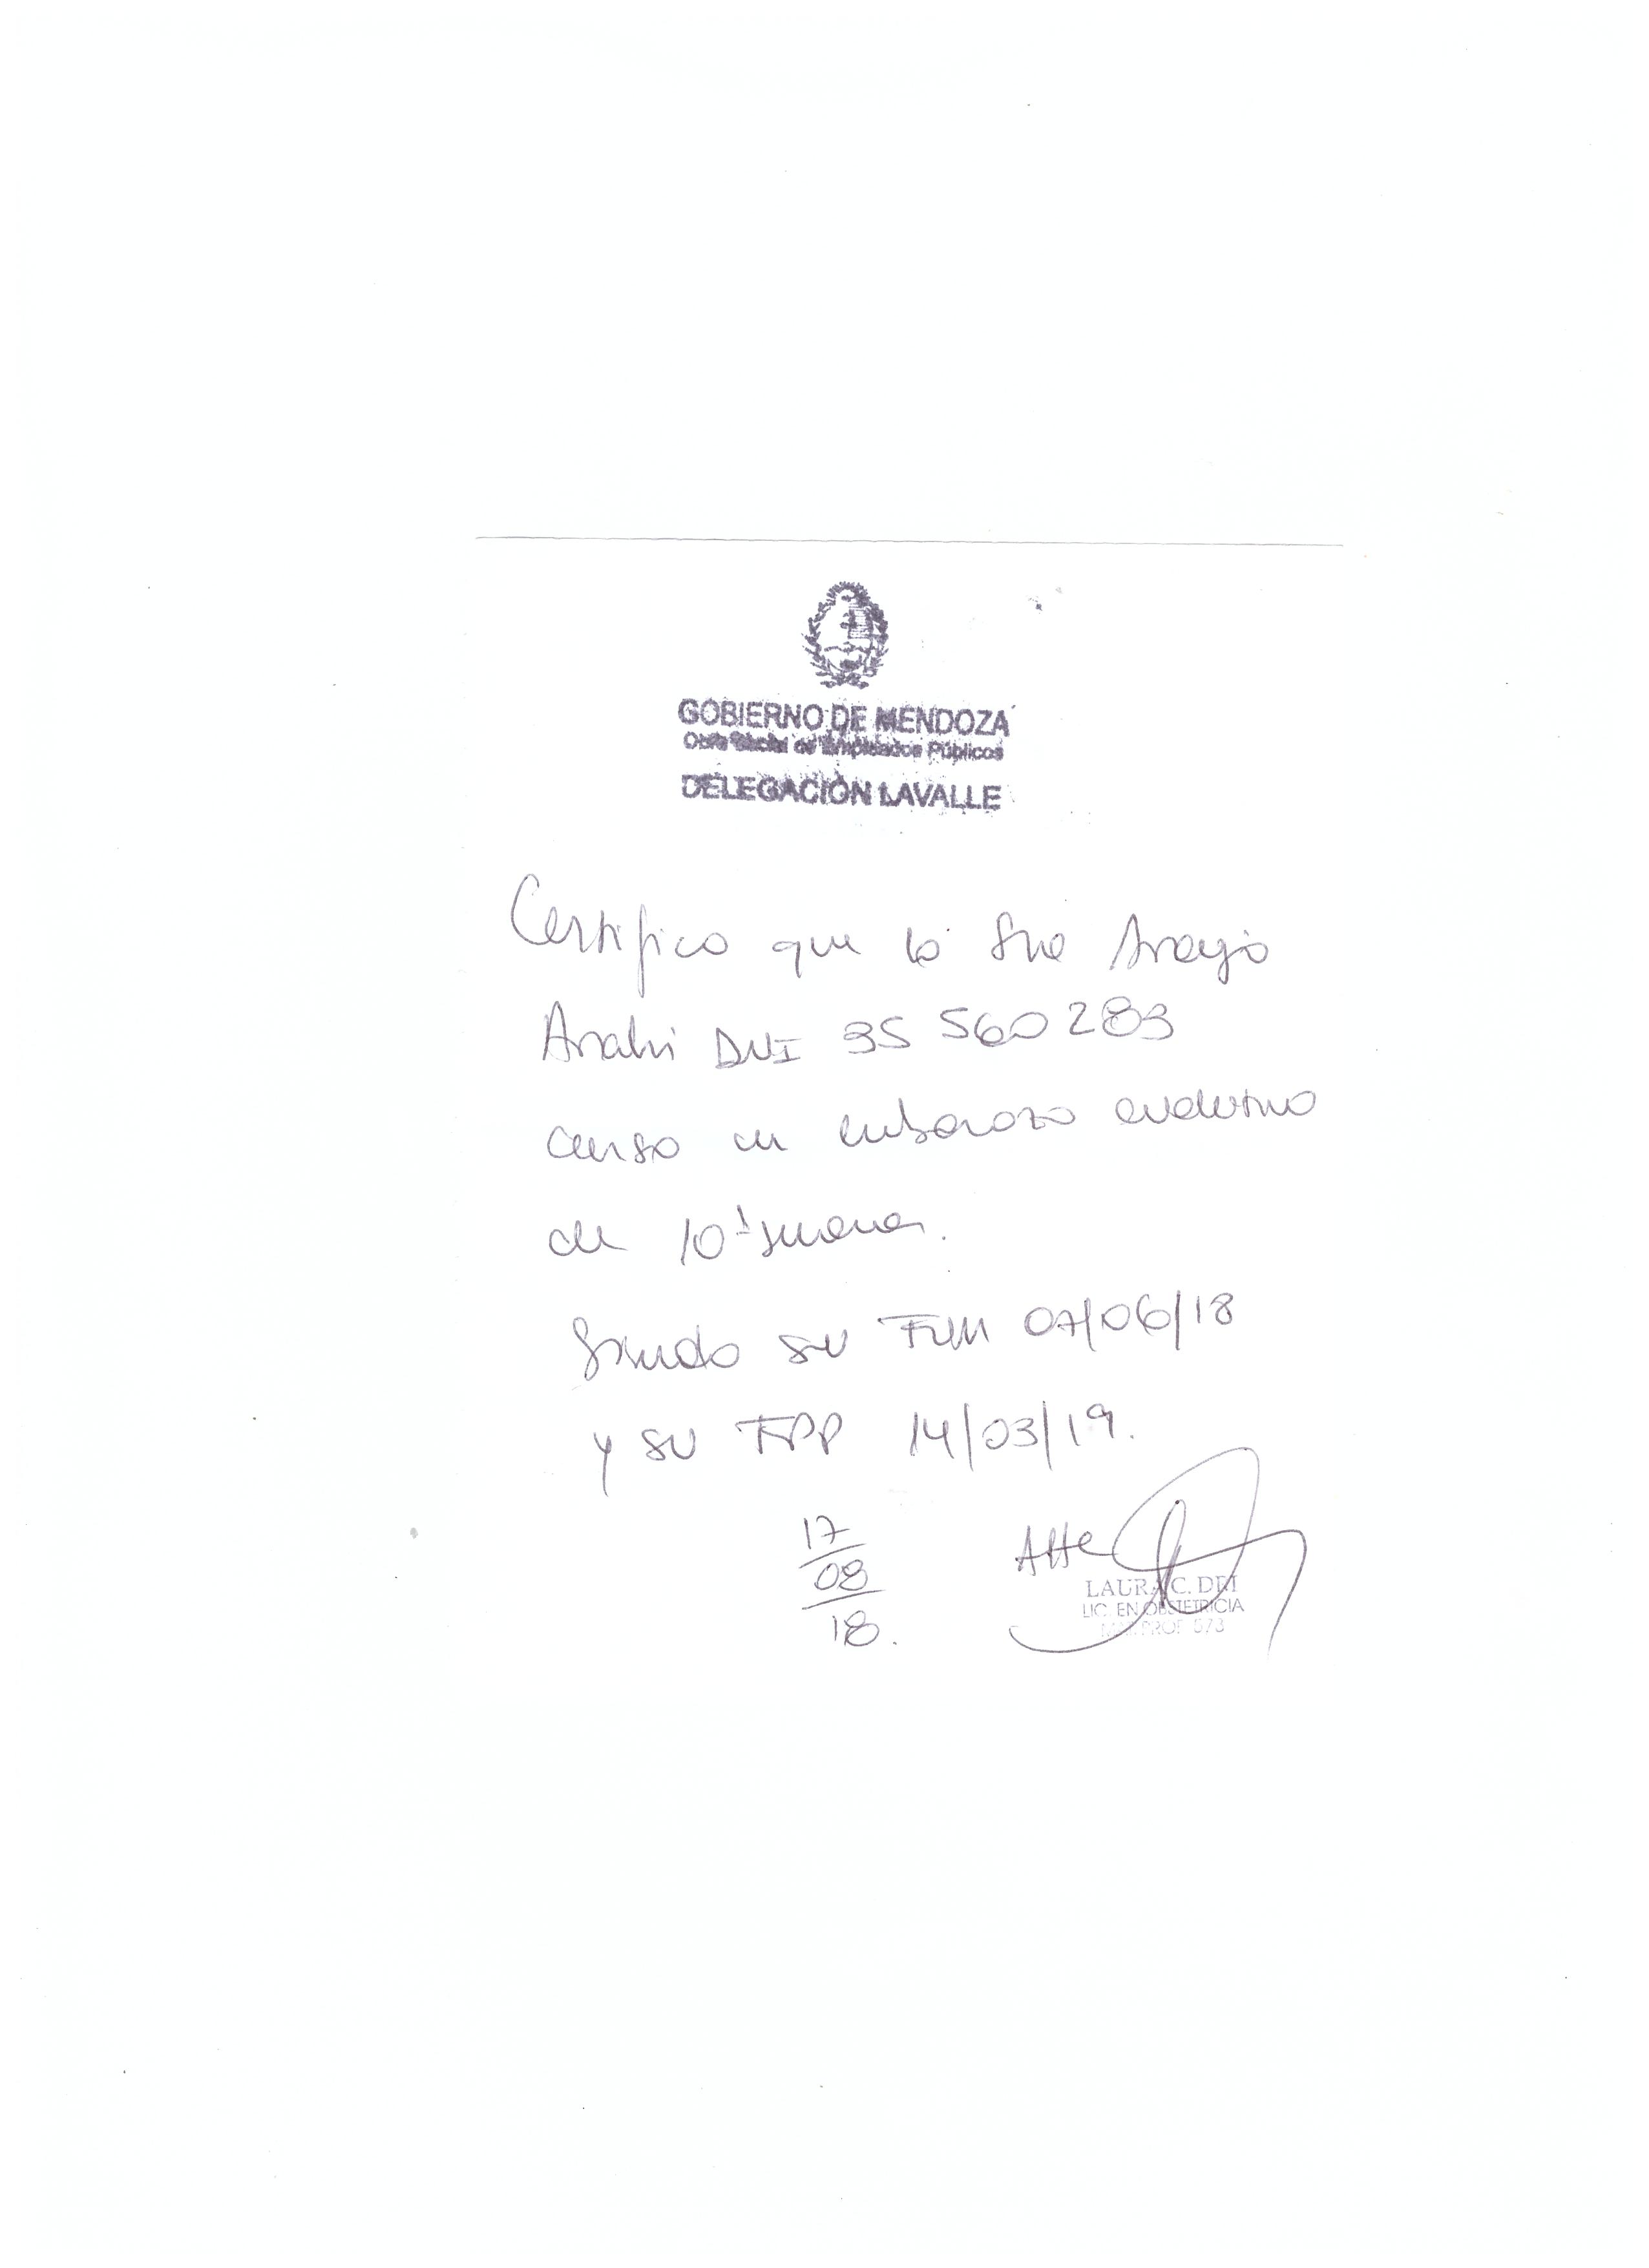 GOBIERNO DE MENDOZA
Obra Social de Empleados Públicos
DELEGACIÓN LAVALLE
Certifico que la Sra Araujo
Anahi DNI 35 560 283
curso un embarazo evolutivo
de 10 semanas.
Siendo su FUM 07/06/18
y su FPP 14/03/19.
17
08
18.
Atte
LAURA C. DEI
LIC. EN OBSTETRICIA
MAT. PROF 573